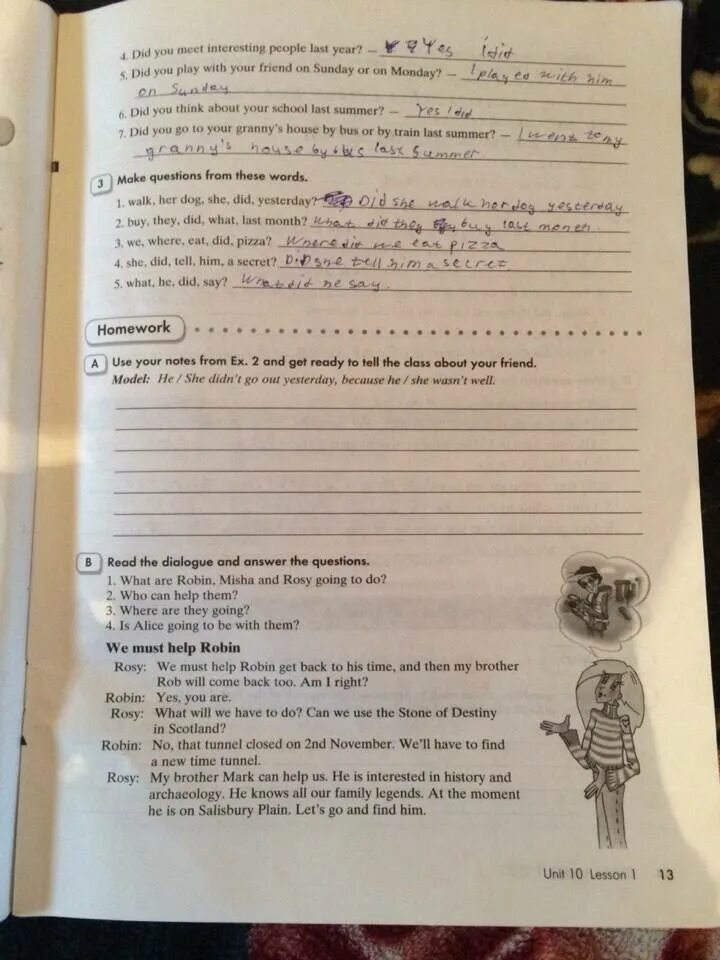 4. Did you meet interesting people last year? – Yes i did
5. Did you play with your friend on Sunday or on Monday? – I played with him
on Sunday
6. Did you think about your school last summer? – Yes I did
7. Did you go to your granny's house by bus or by train last summer? – I went to my
granny's house by bus last summer.
3 Make questions from these words.
1. walk, her dog, she, did, yesterday? Did she walk her dog yesterday
2. buy, they, did, what, last month? What did they buy last month.
3. we, where, eat, did, pizza? Where did we eat pizza
4. she, did, tell, him, a secret? Did she tell him a secret
5. what, he, did, say? What did he say.
Homework
A Use your notes from Ex. 2 and get ready to tell the class about your friend.
Model: He / She didn't go out yesterday, because he / she wasn't well.
B Read the dialogue and answer the questions.
1. What are Robin, Misha and Rosy going to do?
2. Who can help them?
3. Where are they going?
4. Is Alice going to be with them?
We must help Robin
Rosy: We must help Robin get back to his time, and then my brother
Rob will come back too. Am I right?
Robin: Yes, you are.
Rosy: What will we have to do? Can we use the Stone of Destiny
in Scotland?
Robin: No, that tunnel closed on 2nd November. We'll have to find
a new time tunnel.
Rosy: My brother Mark can help us. He is interested in history and
archaeology. He knows all our family legends. At the moment
he is on Salisbury Plain. Let's go and find him.
Unit 10 Lesson 1 13